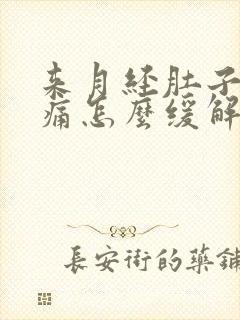 来月经肚子
痛怎麼缓解
長安街的藥鋪